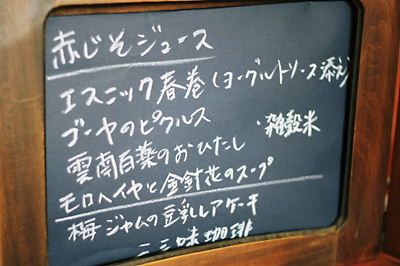 赤じそジュース
エスニック春巻(ヨーグルトソース添え)
ゴーヤのピクルス
・雑穀米
雲南百薬のおひたし
モロヘイヤと金針花のスープ
梅ジャムの豆乳レアケーキ
三味珈琲